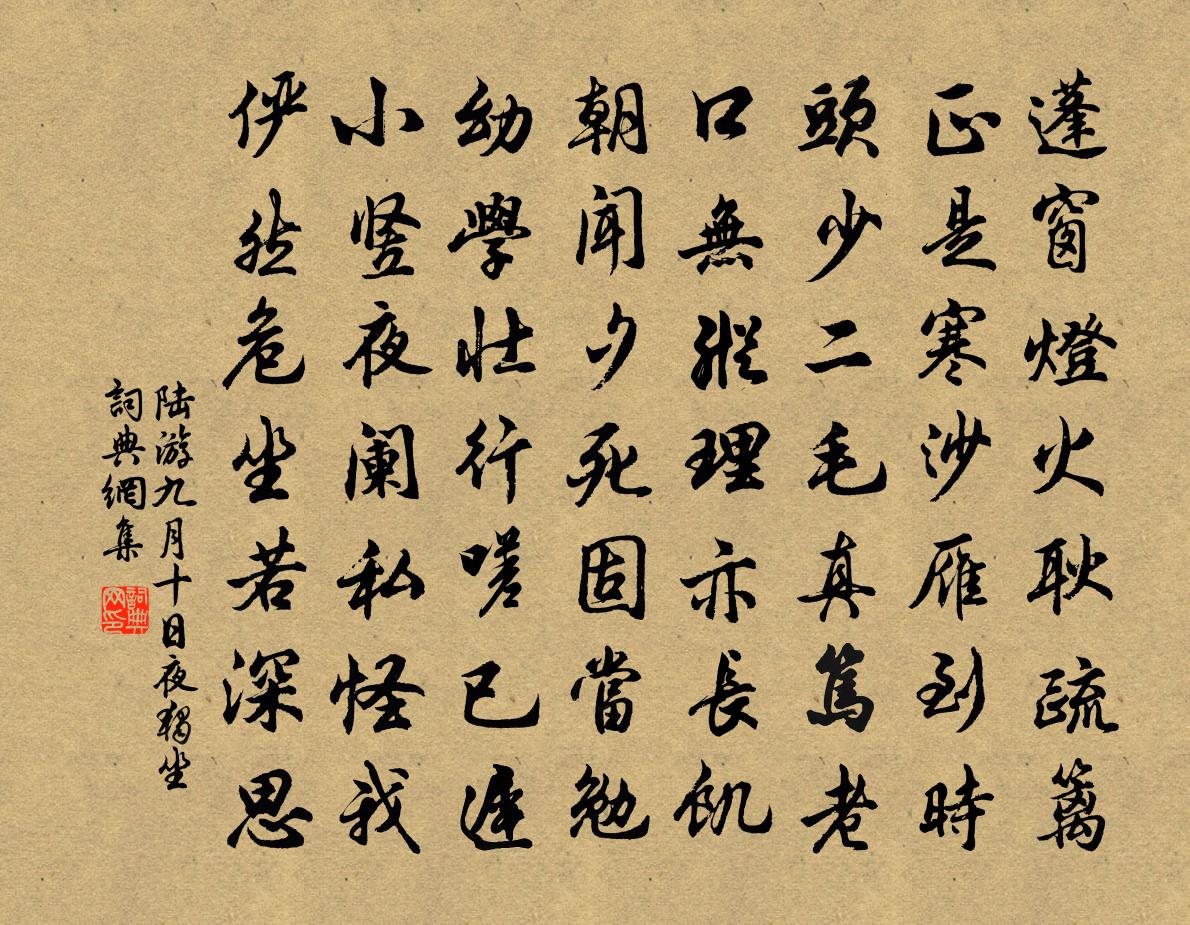 蓬窗燈火耿疏籬
正是寒沙雁到時
頭少二毛真篤老
口無縱理亦長飢
朝聞夕死固當勉
幼學壯行嗟已遲
小豎夜闌私怪我
俨然危坐若深思
陆游九月十日夜獨坐
詞典網集
詞典网印